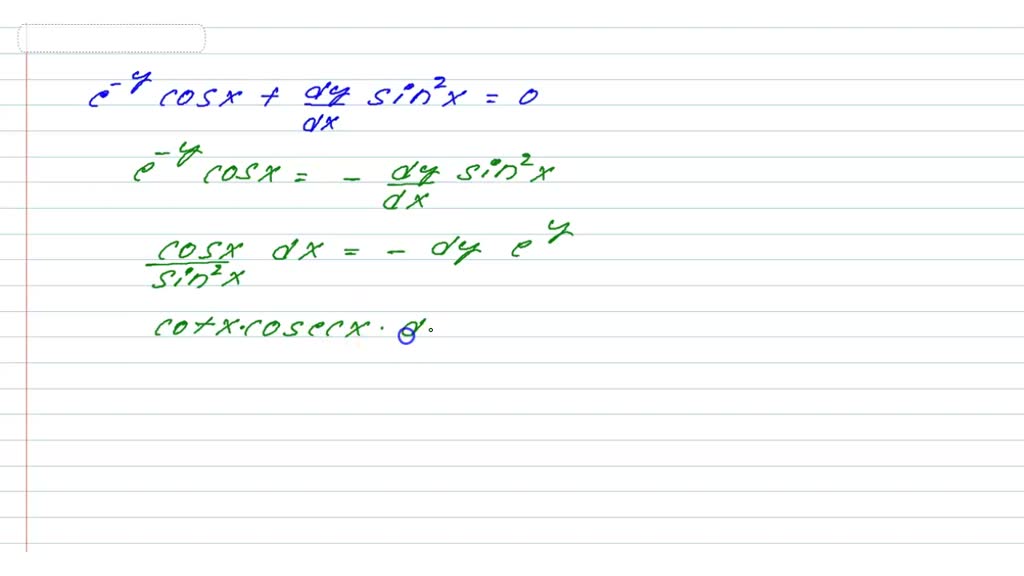 e^{-y} cosx + dy/dx sin²x = 0
e^{-y} cosx = - dy/dx sin²x
cosx/sin²x dx = - dy e^y
cotx·cosecx·d